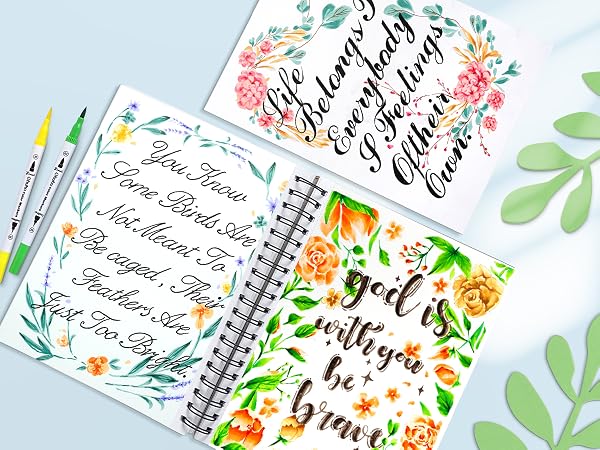 You Know
Some Birds Are
Not Meant To
Be caged, Their
Feathers Are
Just Too Bright,
god is
with you
be
brave
Life
Belongs T
Everybody
S Feelings
Oftheir
Own.